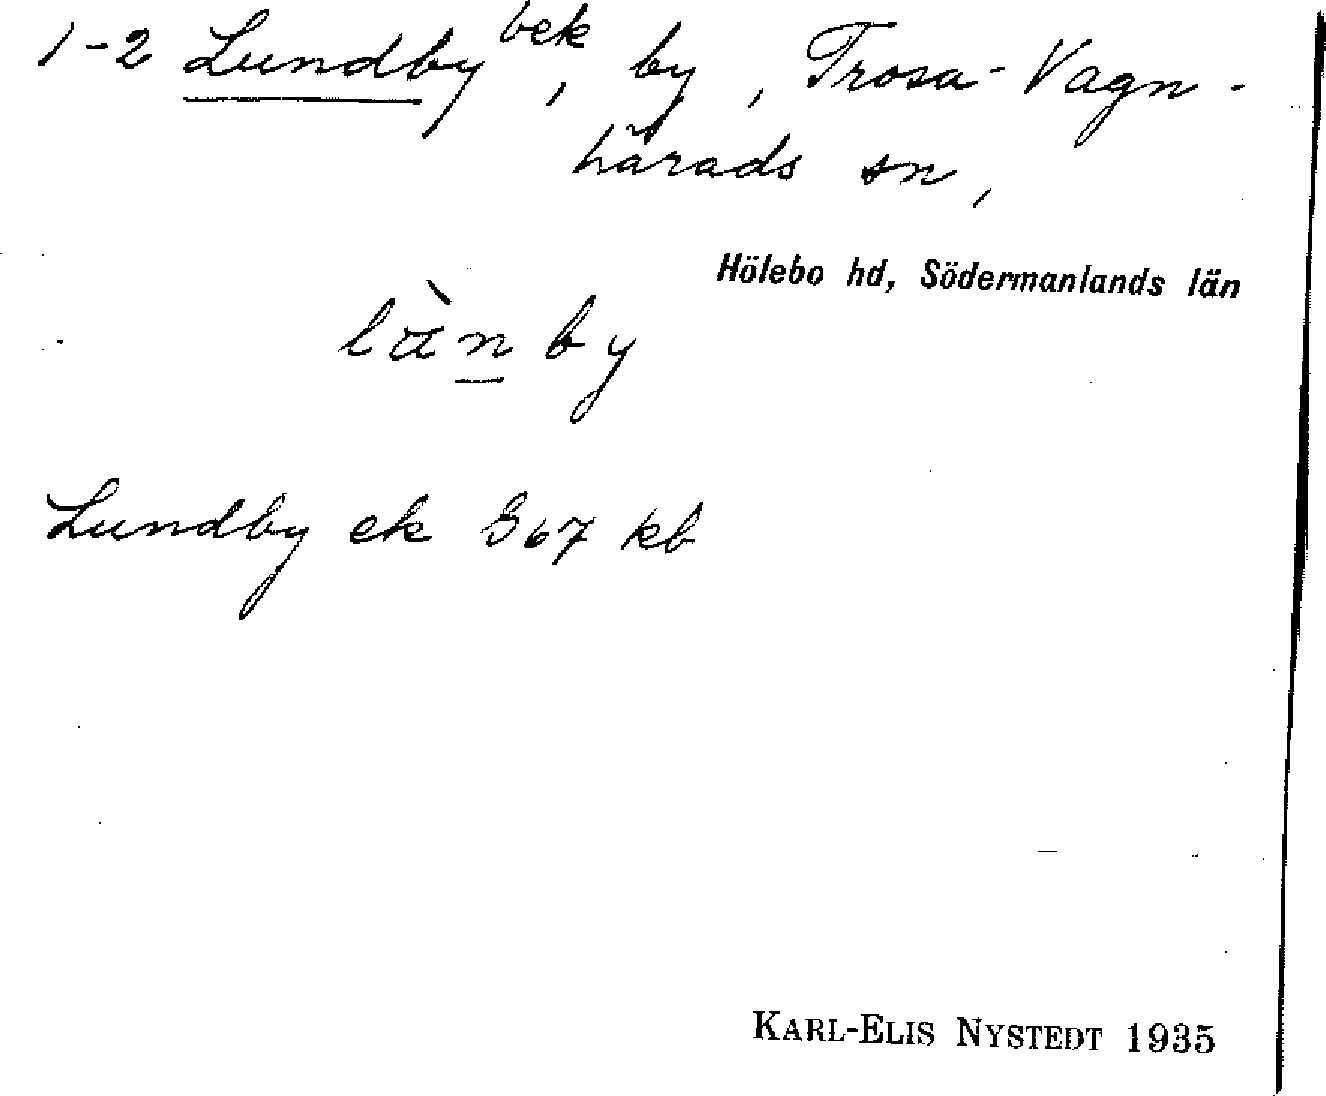 1-2 Lundby bek, by, Trosa-Vagn-
härads sn,
Hölebo hd, Södermanlands län
by
Lundby ek 367 kb
KARL-ELIS NYSTEDT 1935